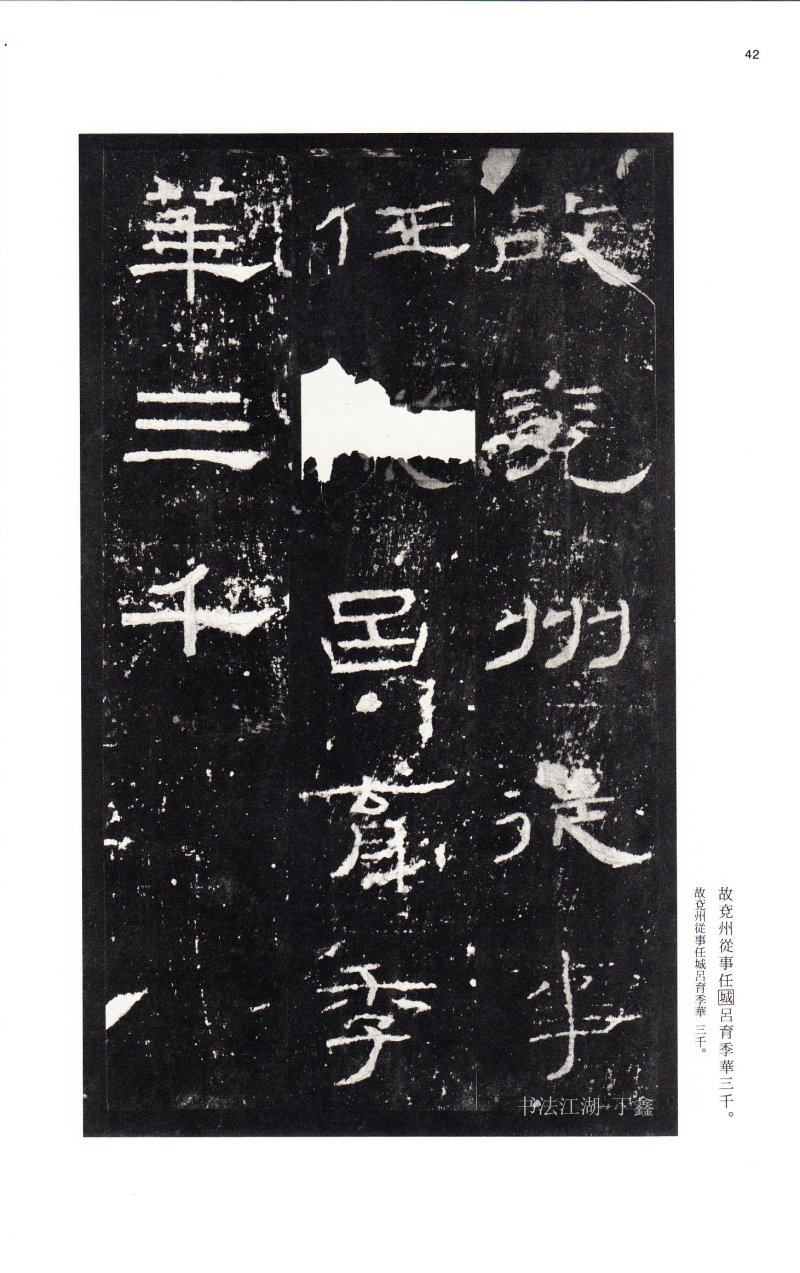 42
故兖州從事
任呂育季
華三千
故兗州從事任城呂育季華三千。
故兗州從事任城呂育季華 三千。
书法江湖-丁鑫